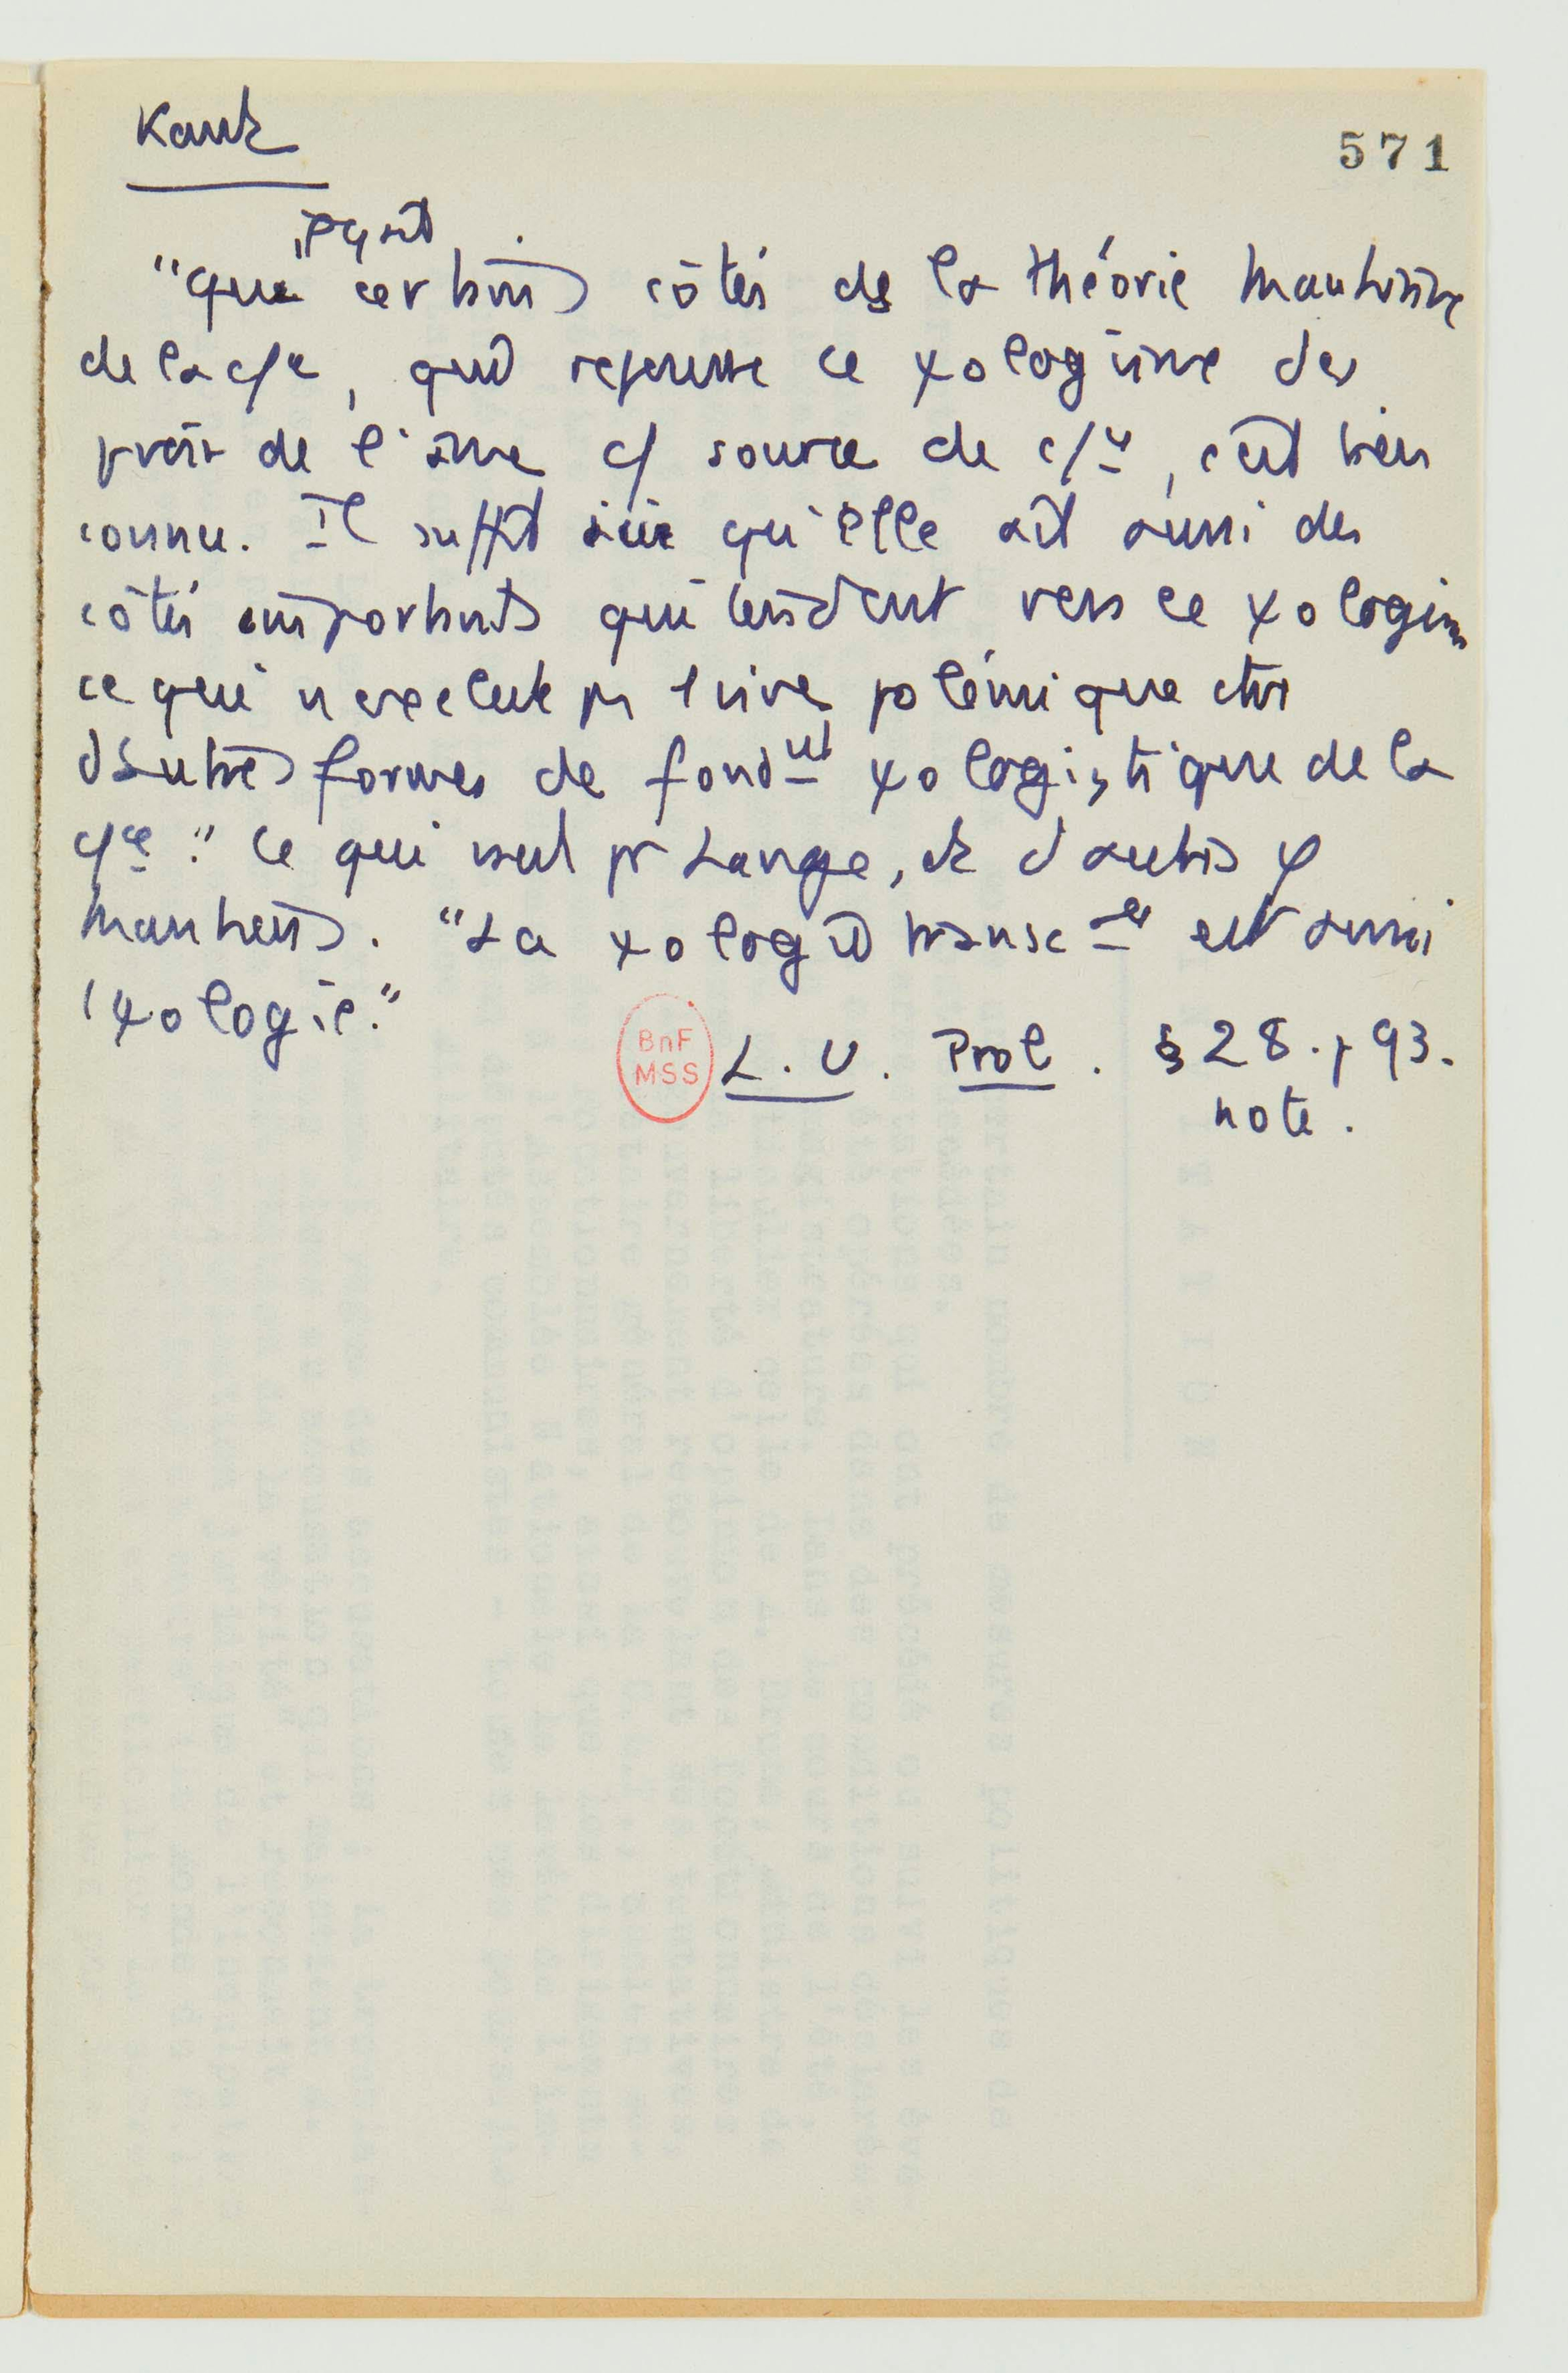 Kant
571
"que certains côtés de la théorie kantienne
de la c/ce, ce ψologisme des
de l'âme c/ source de c/ce, c'est bien
connu. Il suffit ici qu'elle ait aussi des
côtés importants qui tendent vers ce ψologisme
ce qui n'exclut pas 1 vive polémique ctre
d'autres formes de fondmt ψologistique de la
c/ce." Ce qui vaut pr Lange, et d'autres φ
kantiens. "La ψologie transcle est aussi
1 ψologie."
BnF
MSS
L.U. Prol. § 28. p 93.
note.